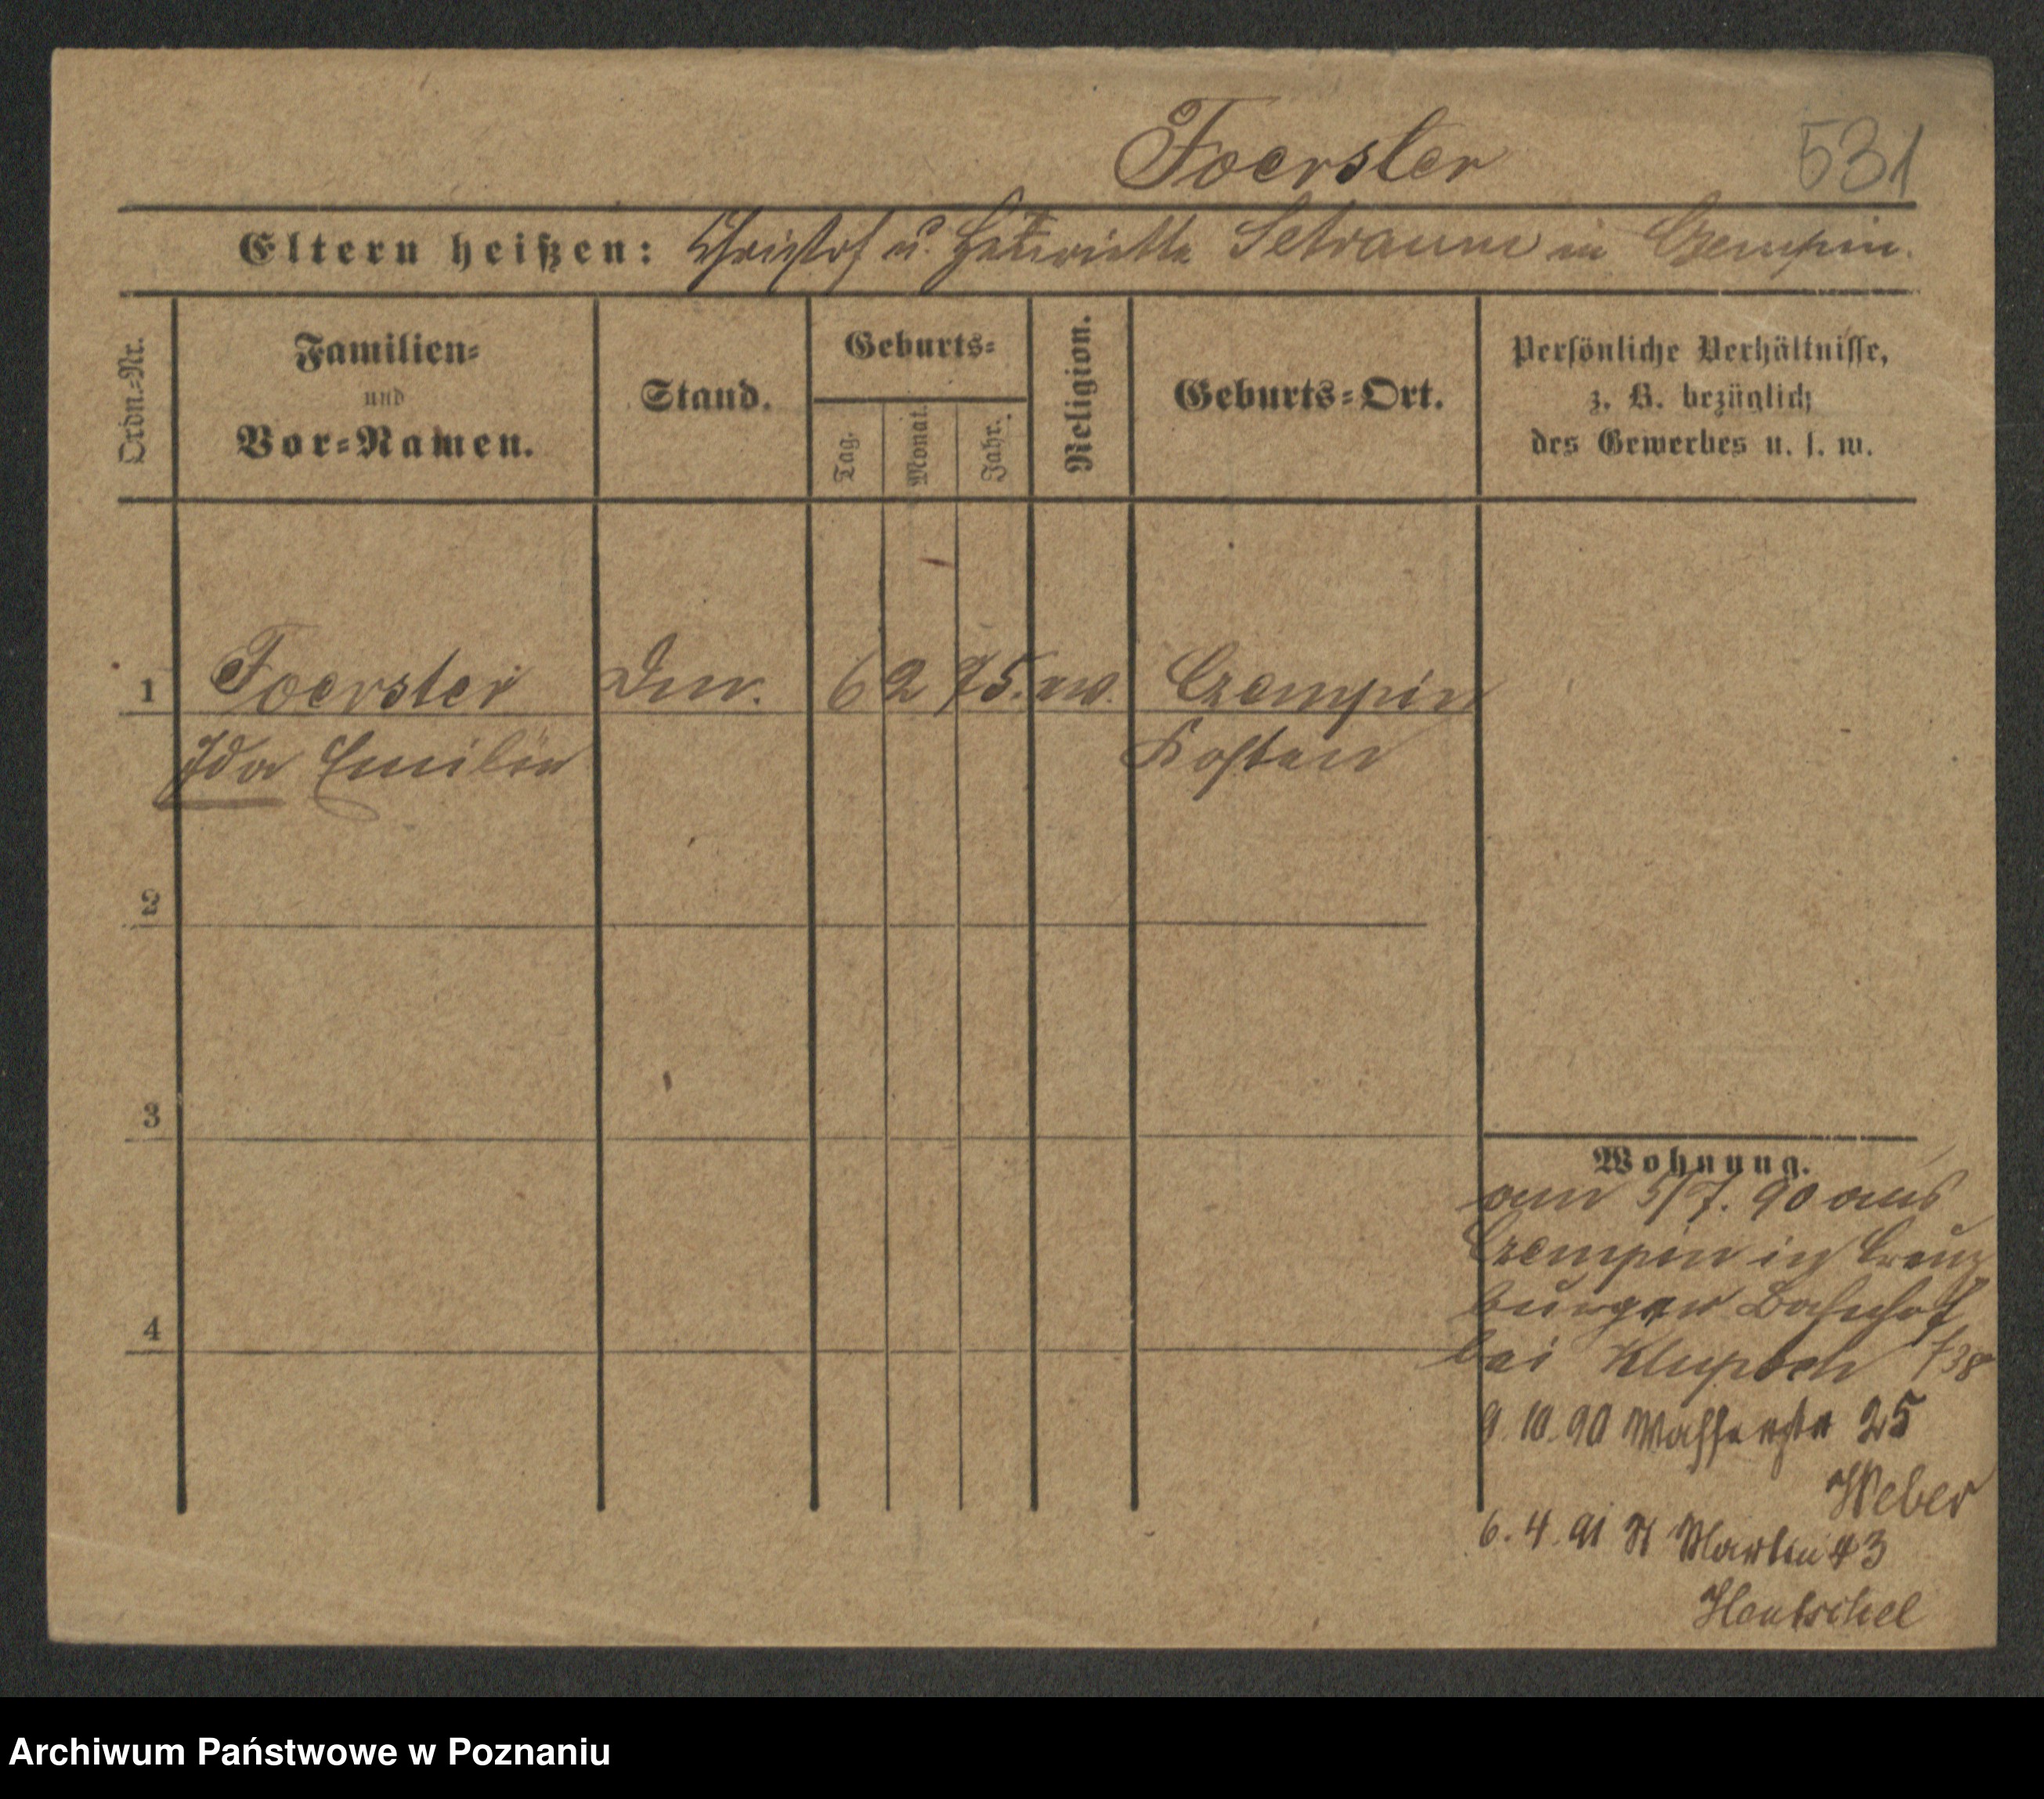 Foerster
531
Eltern heißen: Christof u. Henriette Setraum in Czempin.
Ordn.=Nr.
Familien=
und
Vor=Namen.
Stand.
Geburts=
Tag.
Monat.
Jahr.
Religion.
Geburts=Ort.
Persönliche Verhältnisse,
z. B. bezüglich
des Gewerbes u. s. w.
1 Foerster 6 2 75. ev. Czempin
Ida Emilie Kosten
2
3
4
Wohnung.
am 5/7. 90 aus
Czempin in Creuz
burger Bahnhof
bei
9.10.90 Wasserstr 25
Weber
6.4.91 St Martin 43
Hentschel
Archiwum Państwowe w Poznaniu